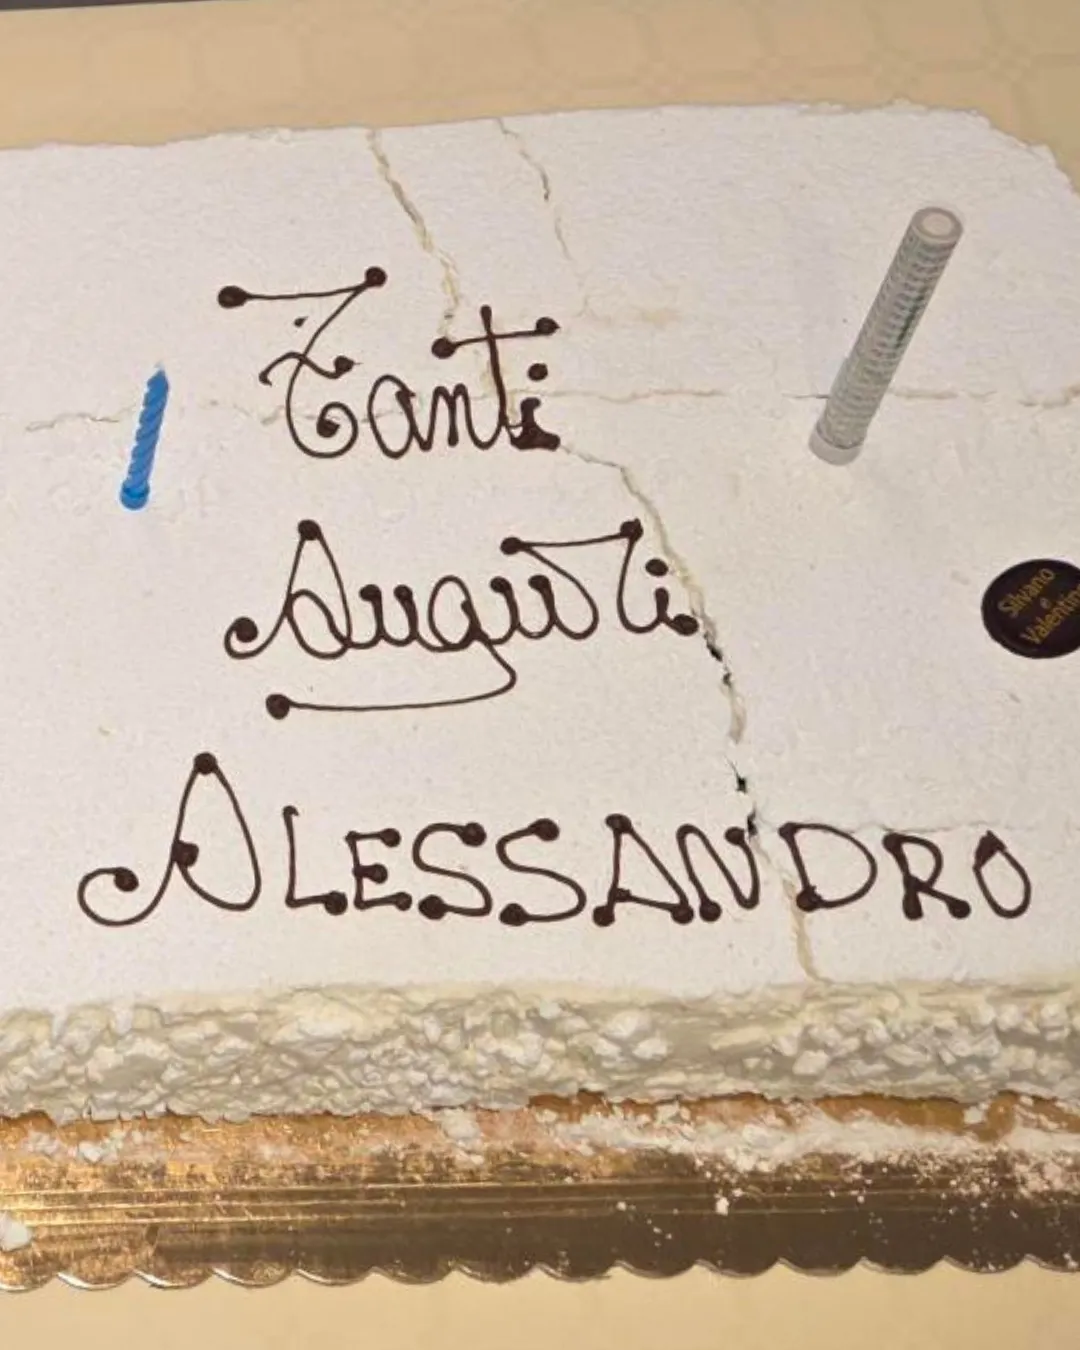 Tanti
Auguri
ALESSANDRO
Silvano
e
Valentin